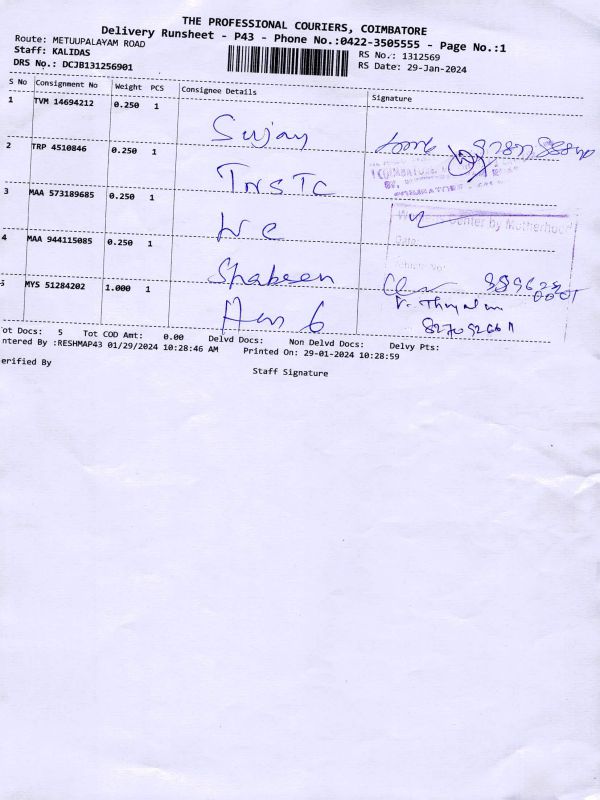 THE PROFESSIONAL COURIERS, COIMBATORE
Delivery Runsheet - P43 - Phone No.:0422-3505555 - Page No.:1
Route: METUUPALAYAM ROAD
RS No.: 1312569
Staff: KALIDAS
RS Date: 29-Jan-2024
DRS No.: DCJB131256901
S No Consignment No Weight PCS Consignee Details Signature
1 TVM 14694212 0.250 1 Sujay
2 TRP 4510846 0.250 1 TNSTC
3 MAA 573189685 0.250 1
by Motherhood
4 MAA 944115085 0.250 1 Shabeen
MYS 51284202 1.000 1
ot Docs: 5 Tot COD Amt: 0.00 Delvd Docs: Non Delvd Docs: Delvy Pts:
ntered By :RESHMAP43 01/29/2024 10:28:46 AM Printed On: 29-01-2024 10:28:59
erified By
Staff Signature